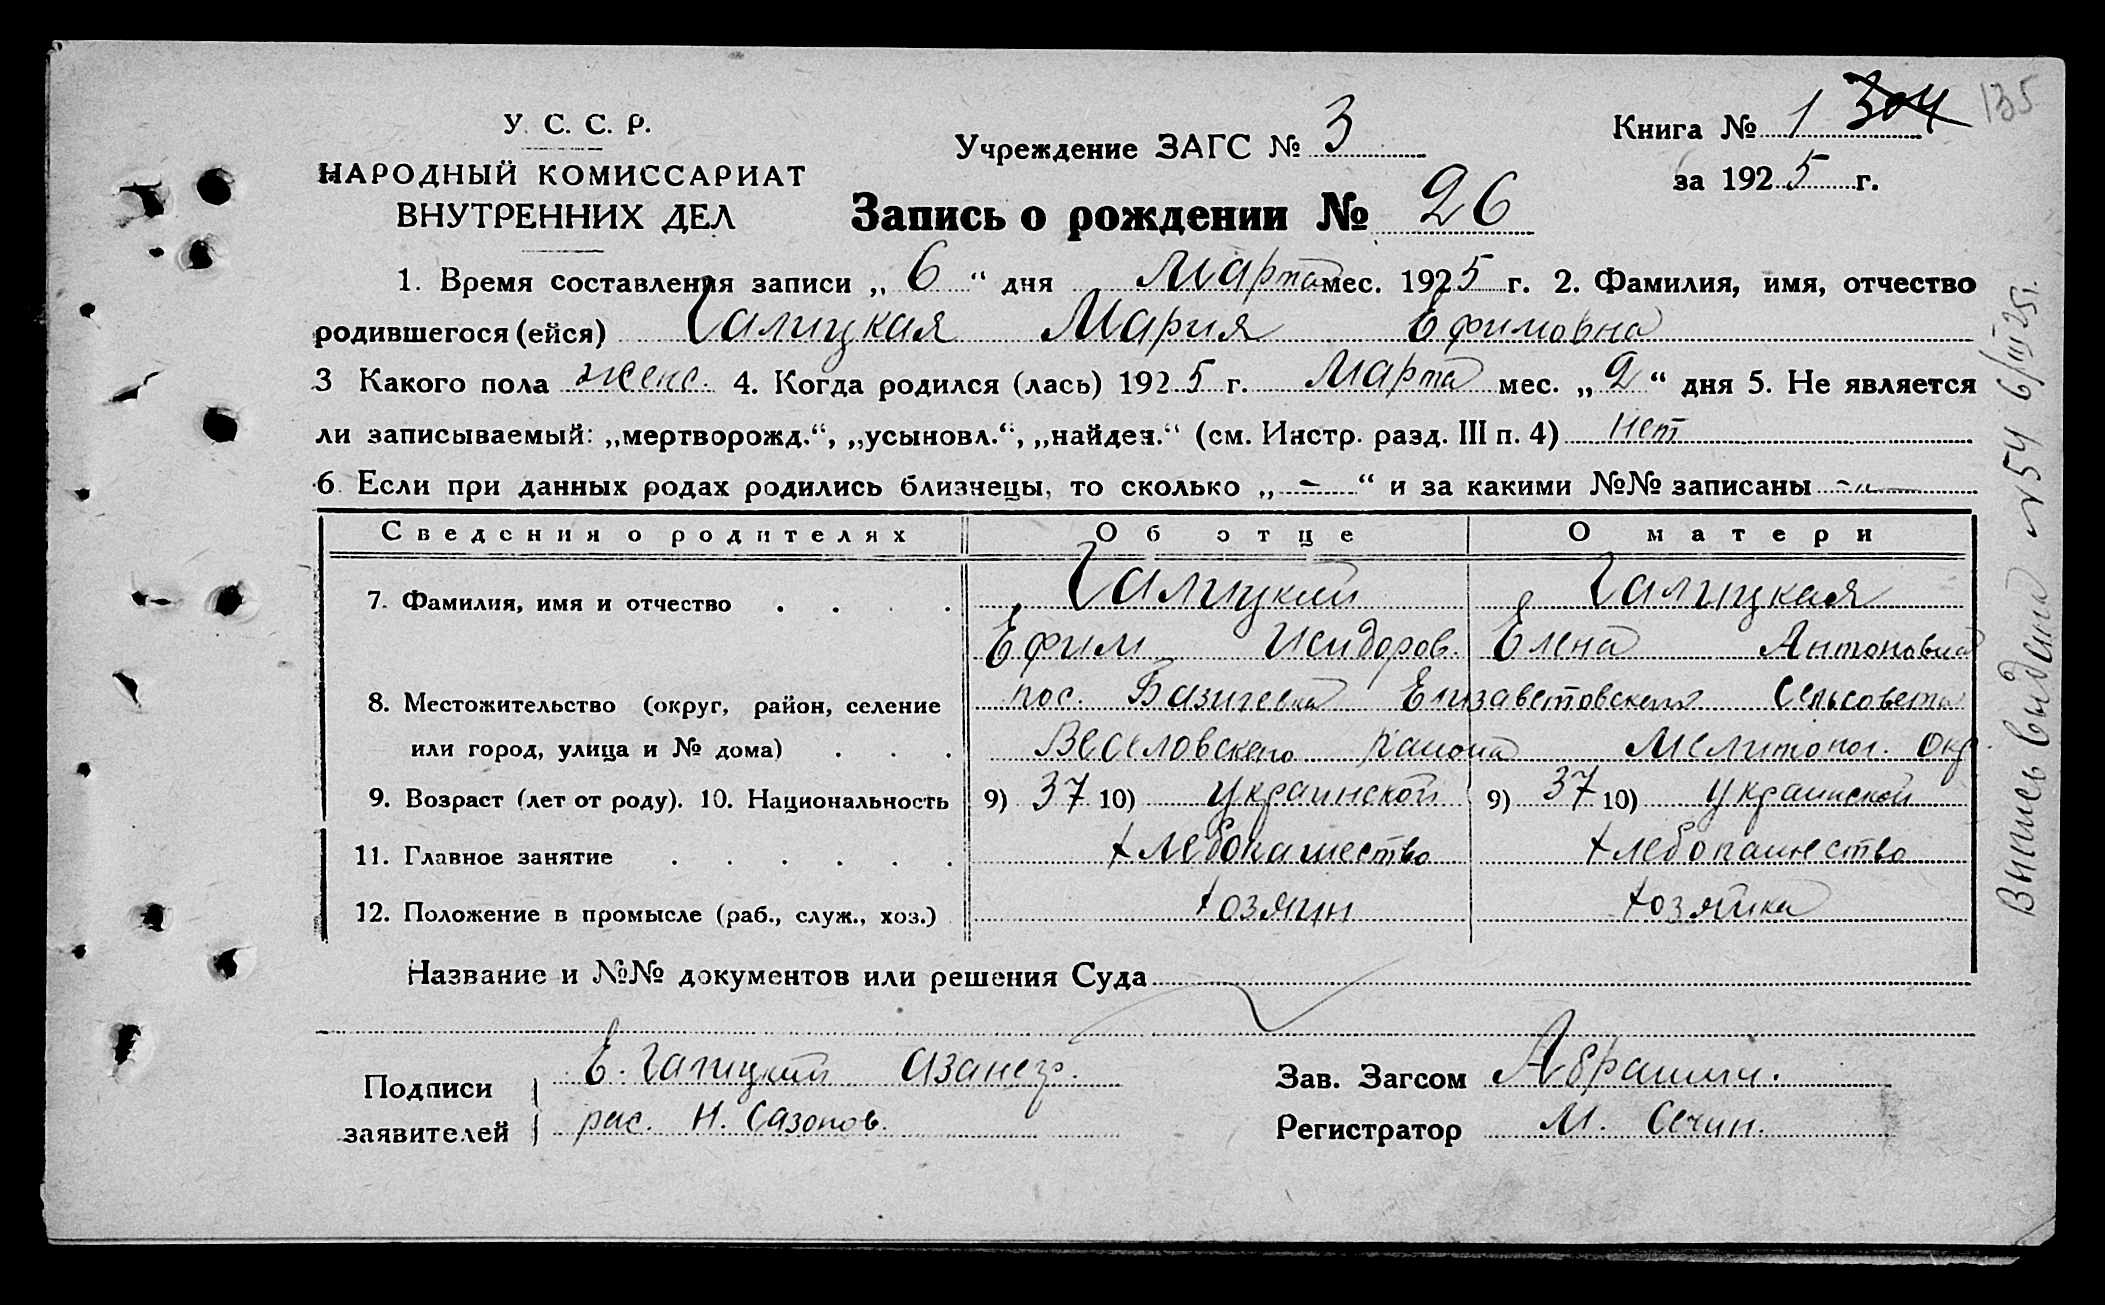 135
У. С. С. Р.
НАРОДНЫЙ КОМИССАРИАТ
ВНУТРЕННИХ ДЕЛ
Учреждение ЗАГС № 3
Книга № 1 304
за 1925 г.
Запись о рождении № 26
1. Время составления записи „ 6 “ дня Марта мес. 1925 г. 2. Фамилия, имя, отчество
родившегося (ейся) Галицкая Мария Ефимовна
3 Какого пола женс. 4. Когда родился (лась) 1925 г. Марта мес. „ 2 “ дня 5. Не является
ли записываемый: „мертворожд.“, „усыновл.“, „найден.“ (см. Инстр. разд. III п. 4) нет
6. Если при данных родах родились близнецы, то сколько „ - “ и за какими №№ записаны -„-
Сведения о родителях Об отце О матери
7. Фамилия, имя и отчество . . . . Галицкий Галицкая
Ефим Исидоров. Елена Антоновна
8. Местожительство (округ, район, селение пос. Елизаветовского Сельсовета
или город, улица и № дома) . . . Веселовского района Мелитопол. Окр.
9. Возраст (лет от роду). 10. Национальность 9) 37 10) Украинской 9) 37 10) Украинской
11. Главное занятие . . . . . . хлебопашество хлебопашество
12. Положение в промысле (раб., служ., хоз.) хозяин хозяйка
Название и №№ документов или решения Суда
Подписи Е. Галицкий а за негр.
заявителей рас. Н. Сазонов.
Зав. Загсом
Регистратор М. Сечин.
Выпись выдана № 54 6/III 25 г.